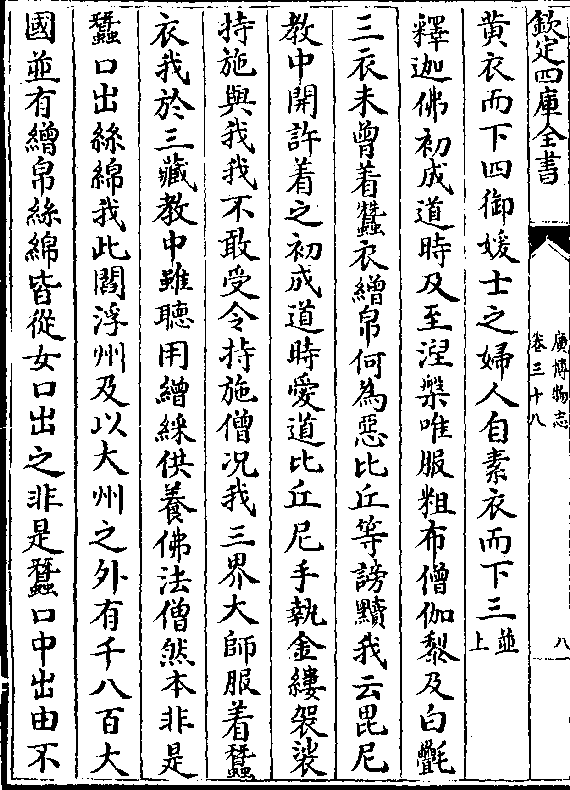 欽定四庫全書
廣博物志
卷三十八
八
黄衣而下四御媛士之婦人自素衣而下三並上
釋迦佛初成道時及至湼槃唯服粗布僧伽黎及白氎
三衣未曾着蠶衣繒帛何為惡比丘等謗黷我云毘尼
教中開許着之初成道時愛道比丘尼手執金縷袈裟
持施與我我不敢受令持施僧况我三界大師服着蠶
衣我於三藏教中雖聽用繒綵供養佛法僧然本非是
蠶口出絲綿我此閻浮州及以大州之外有千八百大
國並有繒帛絲綿皆從女口出之非是蠶口中出由不